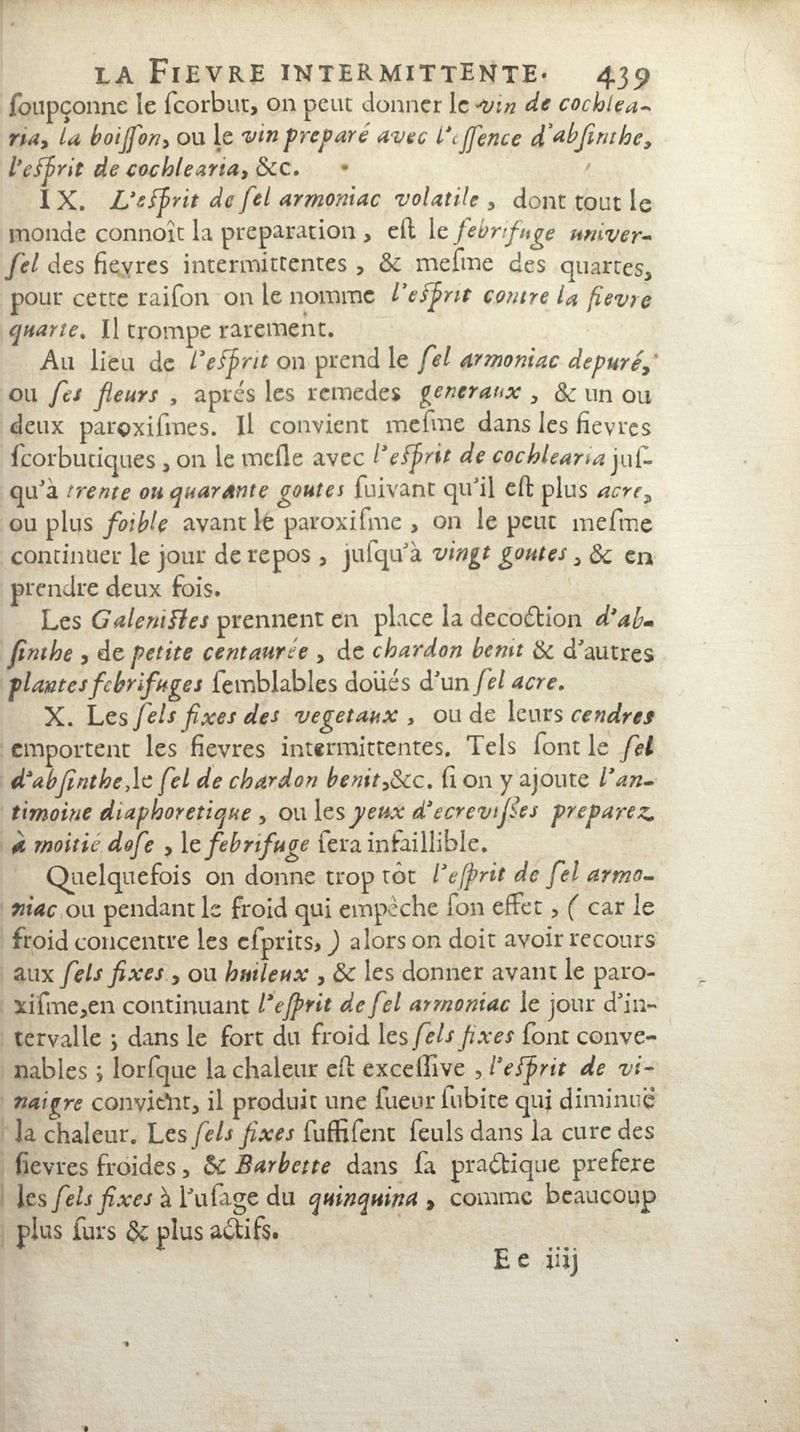 LA FIEVRE INTERMITTENTE. 439
ſoupçonne le ſcorbut, on peut donner le vin de cochlea-
ria, la boiſſon, ou le vin preparé avec l'eſſence d'abſinthe,
l'eſprit de cochlearia, &c.
IX. L'eſprit de ſel armoniac volatile, dont tout le
monde connoît la preparation, eſt le febrifuge univer-
ſel des fievres intermittentes, & meſme des quartes,
pour cette raiſon on le nomme l'eſprit contre la fievre
quarte. Il trompe rarement.
Au lieu de l'eſprit on prend le ſel armoniac depuré,
ou ſes fleurs, aprés les remedes generaux, & un ou
deux paroxiſmes. Il convient meſme dans les fievres
ſcorbutiques, on le meſle avec l'eſprit de cochlearia juſ-
qu'à trente ou quarante goutes ſuivant qu'il eſt plus acre,
ou plus foible avant le paroxiſme, on le peut meſme
continuer le jour de repos, juſqu'à vingt goutes, & en
prendre deux fois.
Les Galeniſtes prennent en place la decoction d'ab-
ſinthe, de petite centaurée, de chardon benit & d'autres
plantes febrifuges ſemblables doüés d'un ſel acre.
X. Les ſels fixes des vegetaux, ou de leurs cendres
emportent les fievres intermittentes. Tels ſont le ſel
d'abſinthe, le ſel de chardon benit, &c. ſi on y ajoute l'an-
timoine diaphoretique, ou les yeux d'ecreviſſes preparez
à moitié doſe, le febrifuge ſera infaillible.
Quelquefois on donne trop tôt l'eſprit de ſel armo-
niac ou pendant le froid qui empèche ſon effet, ( car le
froid concentre les eſprits, ) alors on doit avoir recours
aux ſels fixes, ou huileux, & les donner avant le paro-
xiſme, en continuant l'eſprit de ſel armoniac le jour d'in-
tervalle ; dans le fort du froid les ſels fixes ſont conve-
nables ; lorſque la chaleur eſt exceſſive, l'eſprit de vi-
naigre convient, il produit une ſueur ſubite qui diminuë
la chaleur. Les ſels fixes ſuffiſent ſeuls dans la cure des
fievres froides, & Barbette dans ſa practique prefere
les ſels fixes à l'uſage du quinquina, comme beaucoup
plus ſurs & plus actifs.
E e iiij